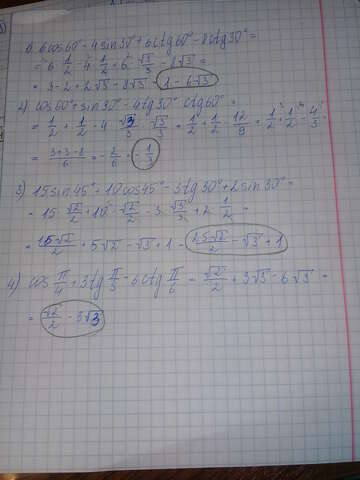 1) 6cos60° - 4sin30° + 6ctg60° - 8ctg30° =
= 6·1/2 - 4·1/2 + 6·√3/3 - 8√3 =
= 3 - 2 + 2√3 - 8√3 = 1 - 6√3
2) cos60° + sin30° - 4tg30° · ctg60° =
= 1/2 + 1/2 - 4·√3/3 · √3/3 = 1/2 + 1/2 - 12/9 = 1/2 + 1/2 - 4/3 =
= (3+3-8)/6 = -2/6 = -1/3
3) 15sin45° + 10cos45° - 3tg30° + 2sin30° =
= 15·√2/2 + 10·√2/2 - 3·√3/3 + 2·1/2 =
= 15√2/2 + 5√2 - √3 + 1 = 25√2/2 - √3 + 1
4) cos π/4 + 3tg π/3 - 6ctg π/6 = √2/2 + 3√3 - 6√3 =
= √2/2 - 3√3